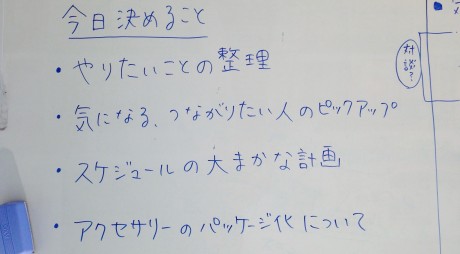 今日決めること
・やりたいことの整理
・気になる、つながりたい人のピックアップ
・スケジュールの大まかな計画
・アクセサリーのパッケージ化について
対談?